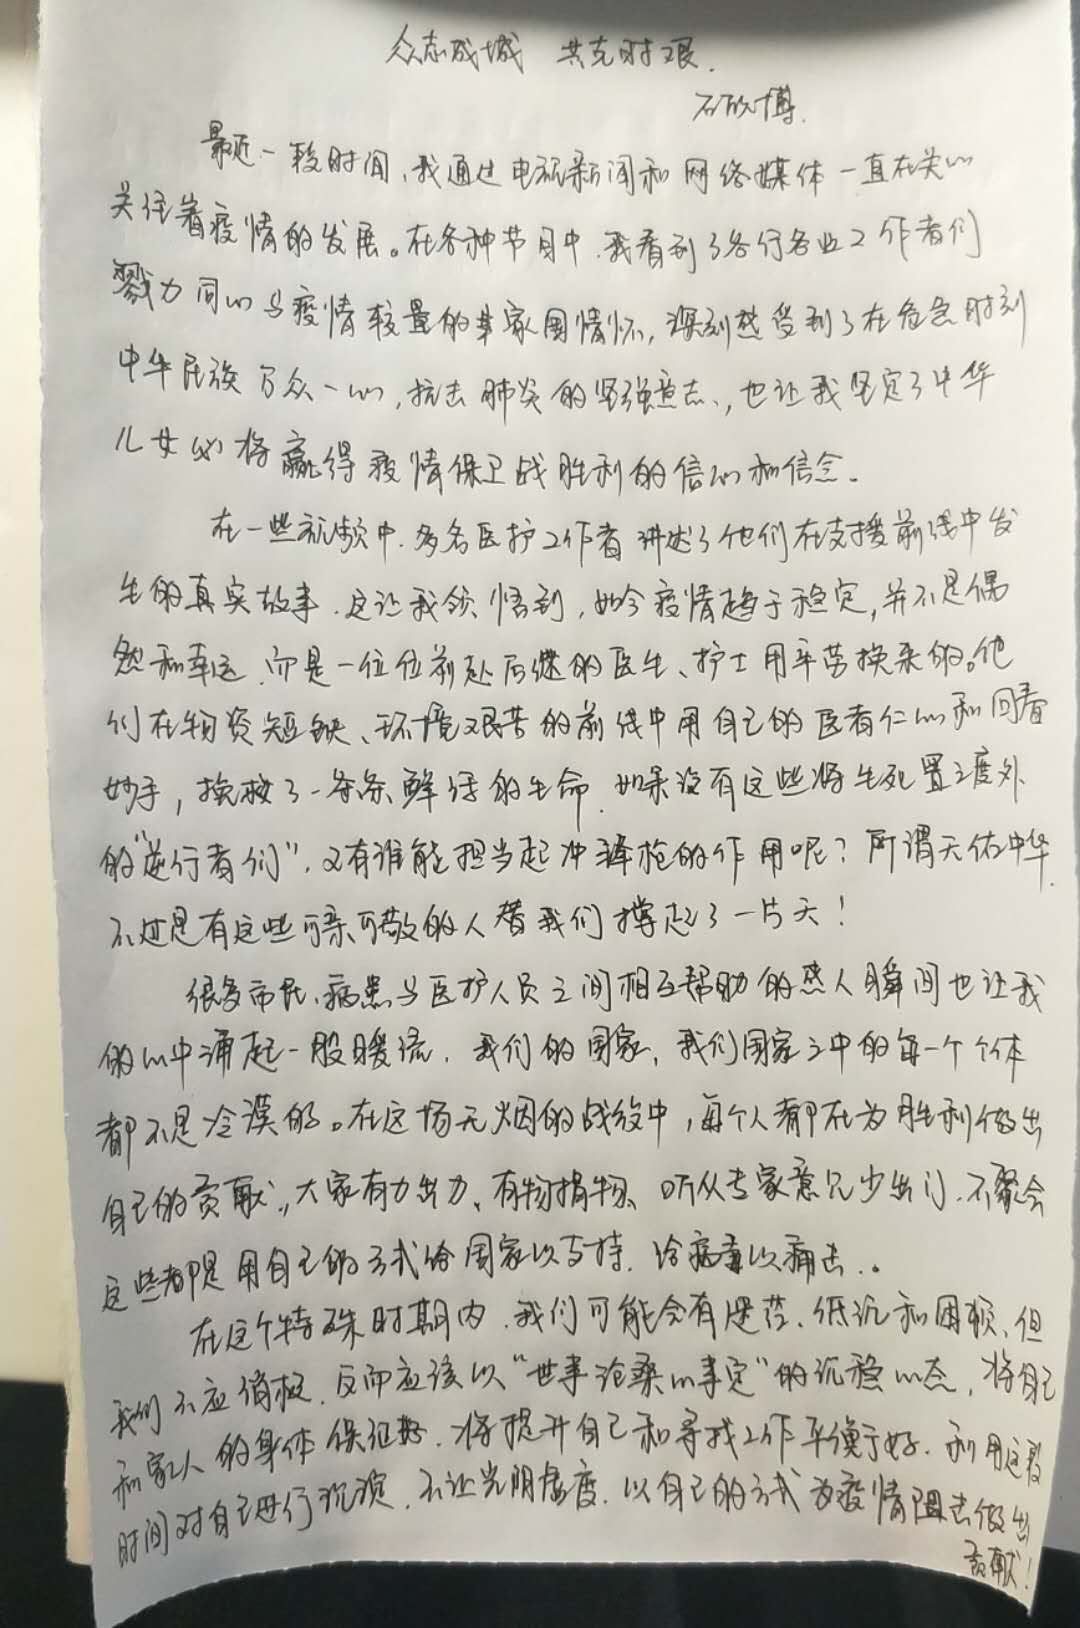 众志成城 共克时艰.
石欣博.
最近一段时间,我通过电视新闻和网络媒体一直在关心
关注着疫情的发展。在各种节目中,我看到了各行各业工作者们
戮力同心与疫情较量的家国情怀,深刻感受到了在危急时刻
中华民族万众一心,抗击肺炎的坚强意志,也让我坚定了中华
儿女必将赢得疫情保卫战胜利的信心和信念.
在一些视频中.多名医护工作者讲述了他们在支援前线中发
生的真实故事.这让我领悟到,如今疫情趋于稳定,并不是偶
然和幸运,而是一位位前赴后继的医生、护士用辛苦换来的。他
们在物资短缺、环境艰苦的前线中用自己的医者仁心和回春
妙手,挽救了一条条鲜活的生命.如果没有这些将生死置之度外
的"逆行者们",又有谁能担当起冲锋枪的作用呢?所谓天佑中华.
不过是有这些可亲可敬的人替我们撑起了一片天!
很多市民、病患与医护人员之间相互帮助的感人瞬间也让我
的心中涌起一股暖流.我们的国家,我们国家之中的每一个个体
都不是冷漠的。在这场无烟的战役中,每个人都在为胜利做出
自己的贡献,大家有力出力、有物捐物、听从专家意见少出门.不聚会
这些都是用自己的方式给国家以支持.给病毒以痛击.。
在这个特殊时期内.我们可能会有迷茫、低沉和困顿、但
我们不应消极.反而应该以"世事沧桑心事定"的沉稳心态,将自己
和家人的身体保证好.将提升自己和寻找工作平衡好.利用这段
时间对自己进行沉淀.不让光阴虚度.以自己的方式为疫情阻击做出
贡献!